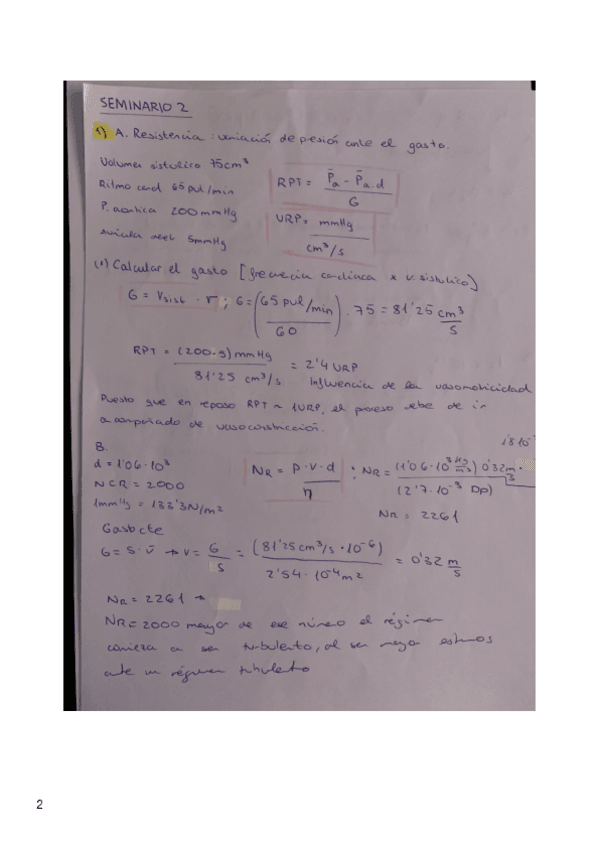 SEMINARIO 2
1) A. Resistencia: variación de presión ante el gasto.
Volumen sistolico 75cm³
Ritmo card 65 pul/min
P. aortica 200 mmHg
auricula derek 5mmHg
RPT = P̄a - P̄a.d / G
URP = mmHg / cm³/s
(1) Calcular el gasto [frecuencia cardiaca x v. sistolico]
G = Vsist · r ; G = (65 pul/min / 60) · 75 = 81'25 cm³/s
RPT = (200-5) mmHg / 81'25 cm³/s = 2'4 URP
Influencia de la vasomotricidad
Puesto que en reposo RPT ~ 1URP, el proceso debe de ir
acompañado de vasoconstriccion.
B.
d = 1'06·10³
NCR = 2000
1mmHg = 133'3N/m²
NR = p·v·d / η ; NR = (1'06·10³ Kg/m³) 0'32m · / (2'7·10⁻³ Dp)
1'8·10⁻
NR = 2261
Gasto cte
G = S·v̄ → v = G/S = (81'25cm³/s · 10⁻⁶) / 2'54·10⁻⁴m² = 0'32 m/s
NR = 2261 →
NR = 2000 mayor de ese número el régimen
comienza a ser turbulento, al ser mayor estamos
ante un régimen turbulento
2